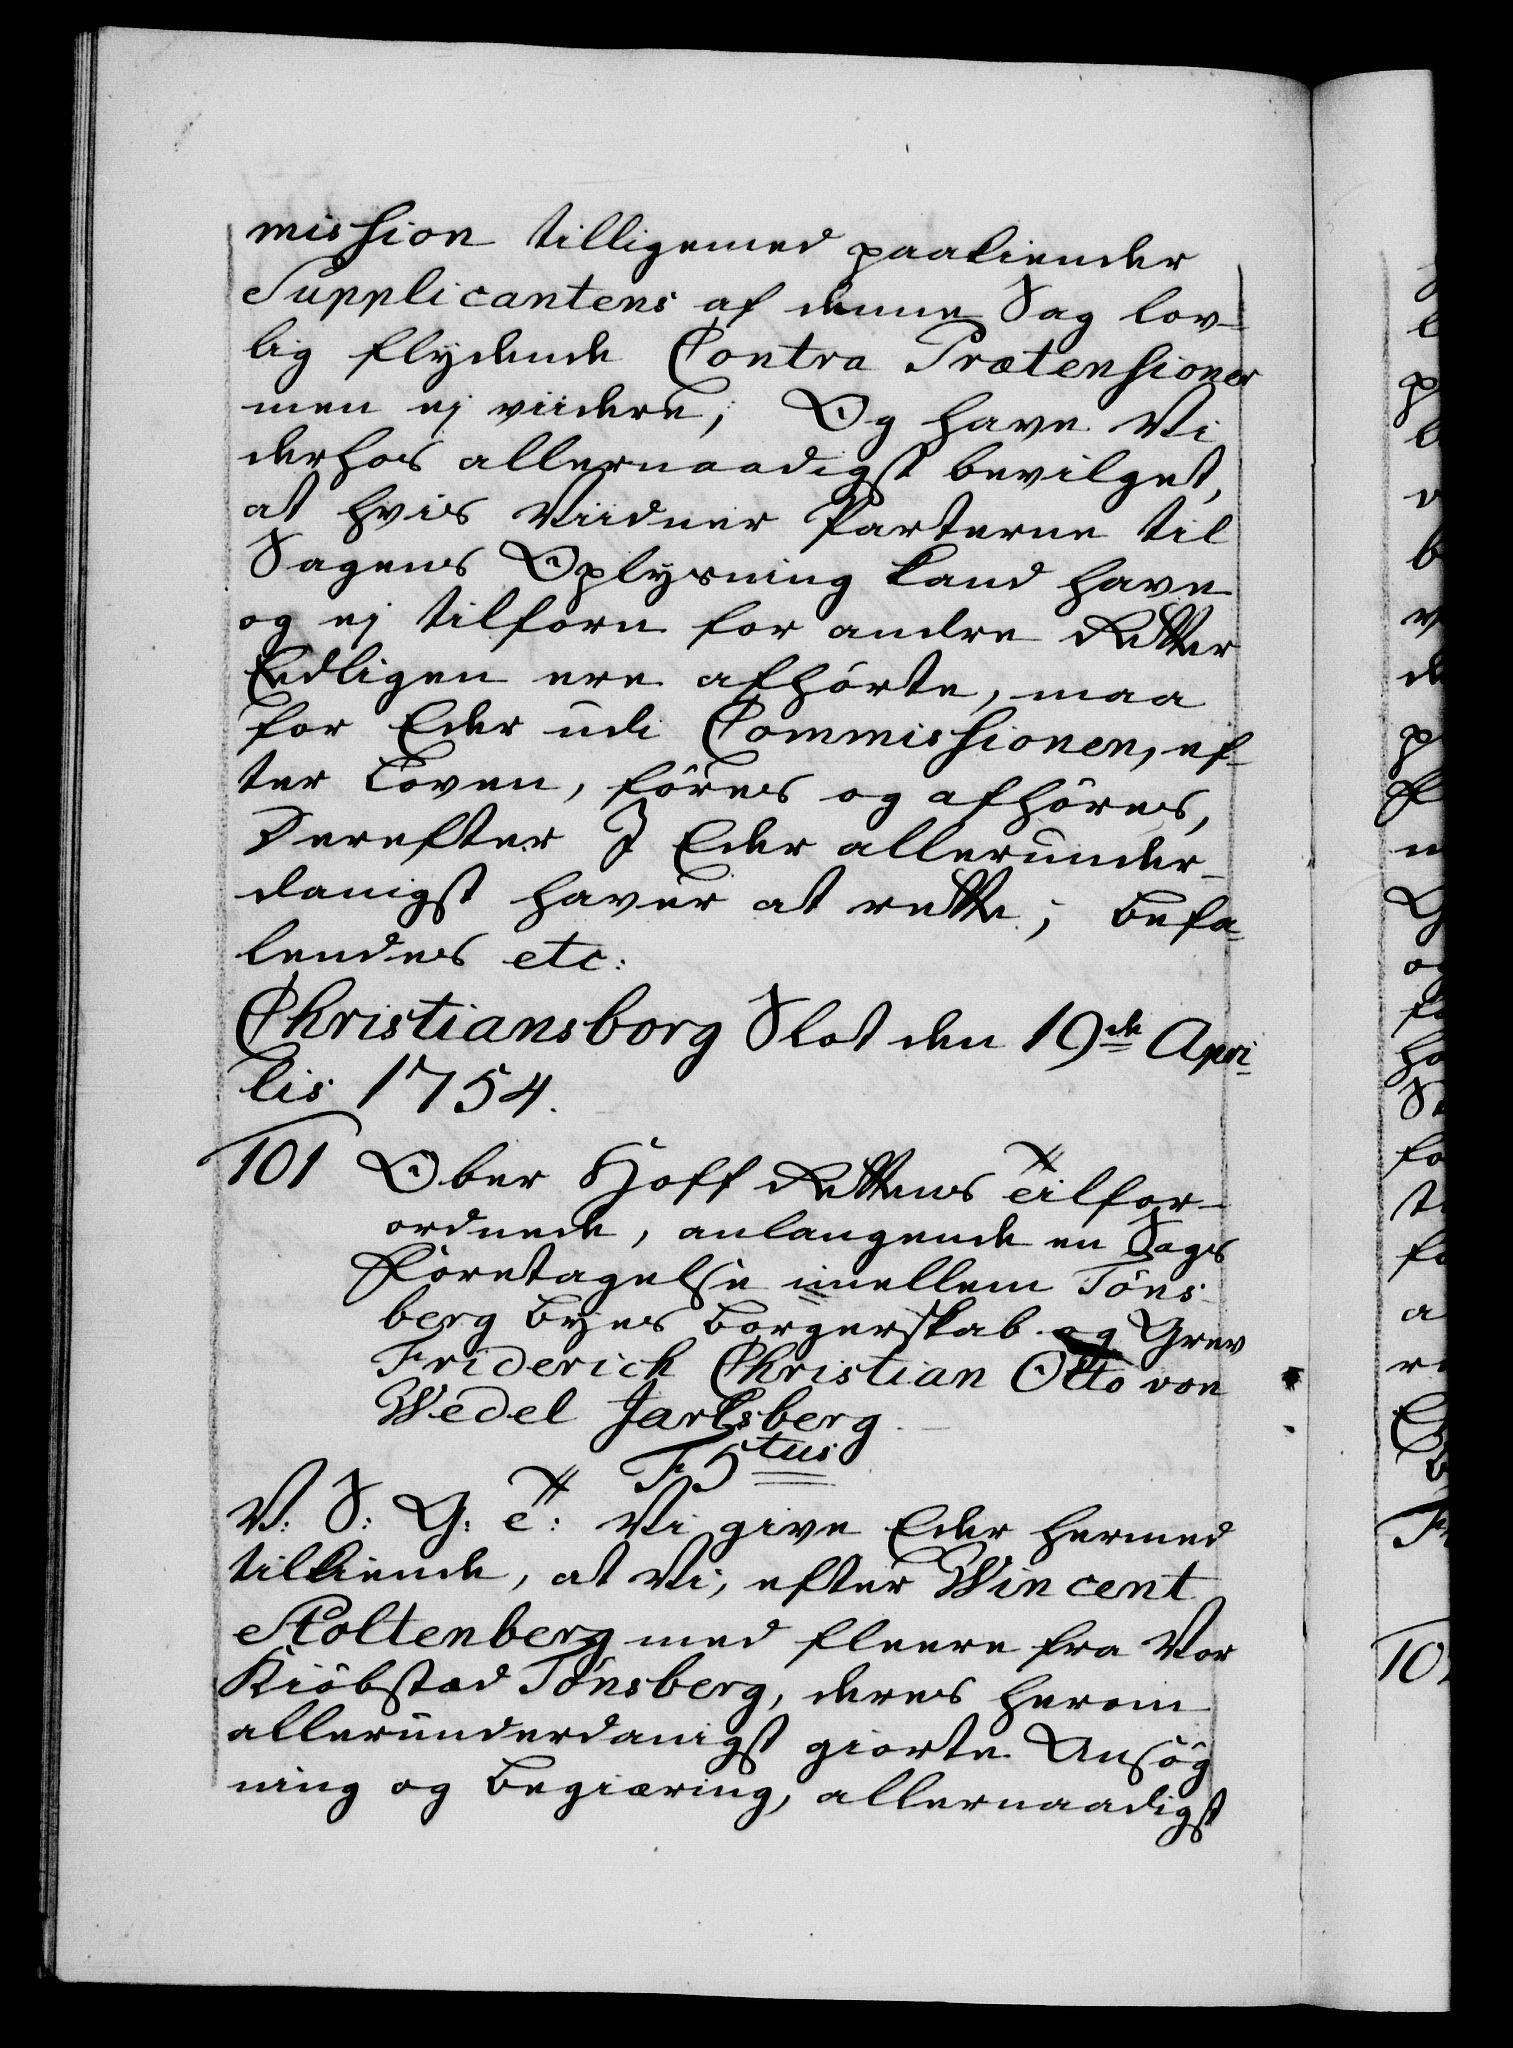 mission tilligemed paakiender
Supplicantens af denne Sag lov-
lig flydende Contra Prætensioner
men ej viidere; Og have Vi
derhos allernaadigst bevilget,
at hvis Viidner Parterne til
Sagens Oplysning kand have
og ej tilforn for andre Retter
Eedligen ere afhørte, maa
for Eder udi Commissionen, ef-
ter Loven, føres og afhøres,
Derefter I Eder allerunder-
danigst haver at rette; Befa-
lendes etc:
Christiansborg Slot den 19de Apri-
lis 1754.
101 Ober Hoff Rettens Tilfor-
ordnede, anlangende en Sags
Foretagelse imellem Tøns-
berg Byes Borgerskab og Grev
Friderich Christian Otto von
Wedel Jarlsberg.
F 5tus
V: S: G: T: Vi give Eder hermed
tilkiende, at Vi, efter Wincent
Stoltenberg med fleere fra Vor
Kiøbstæd Tønsberg, deres herom
allerunderdanigst giorte Ansøg
ning og Begiæring, allernaadigst